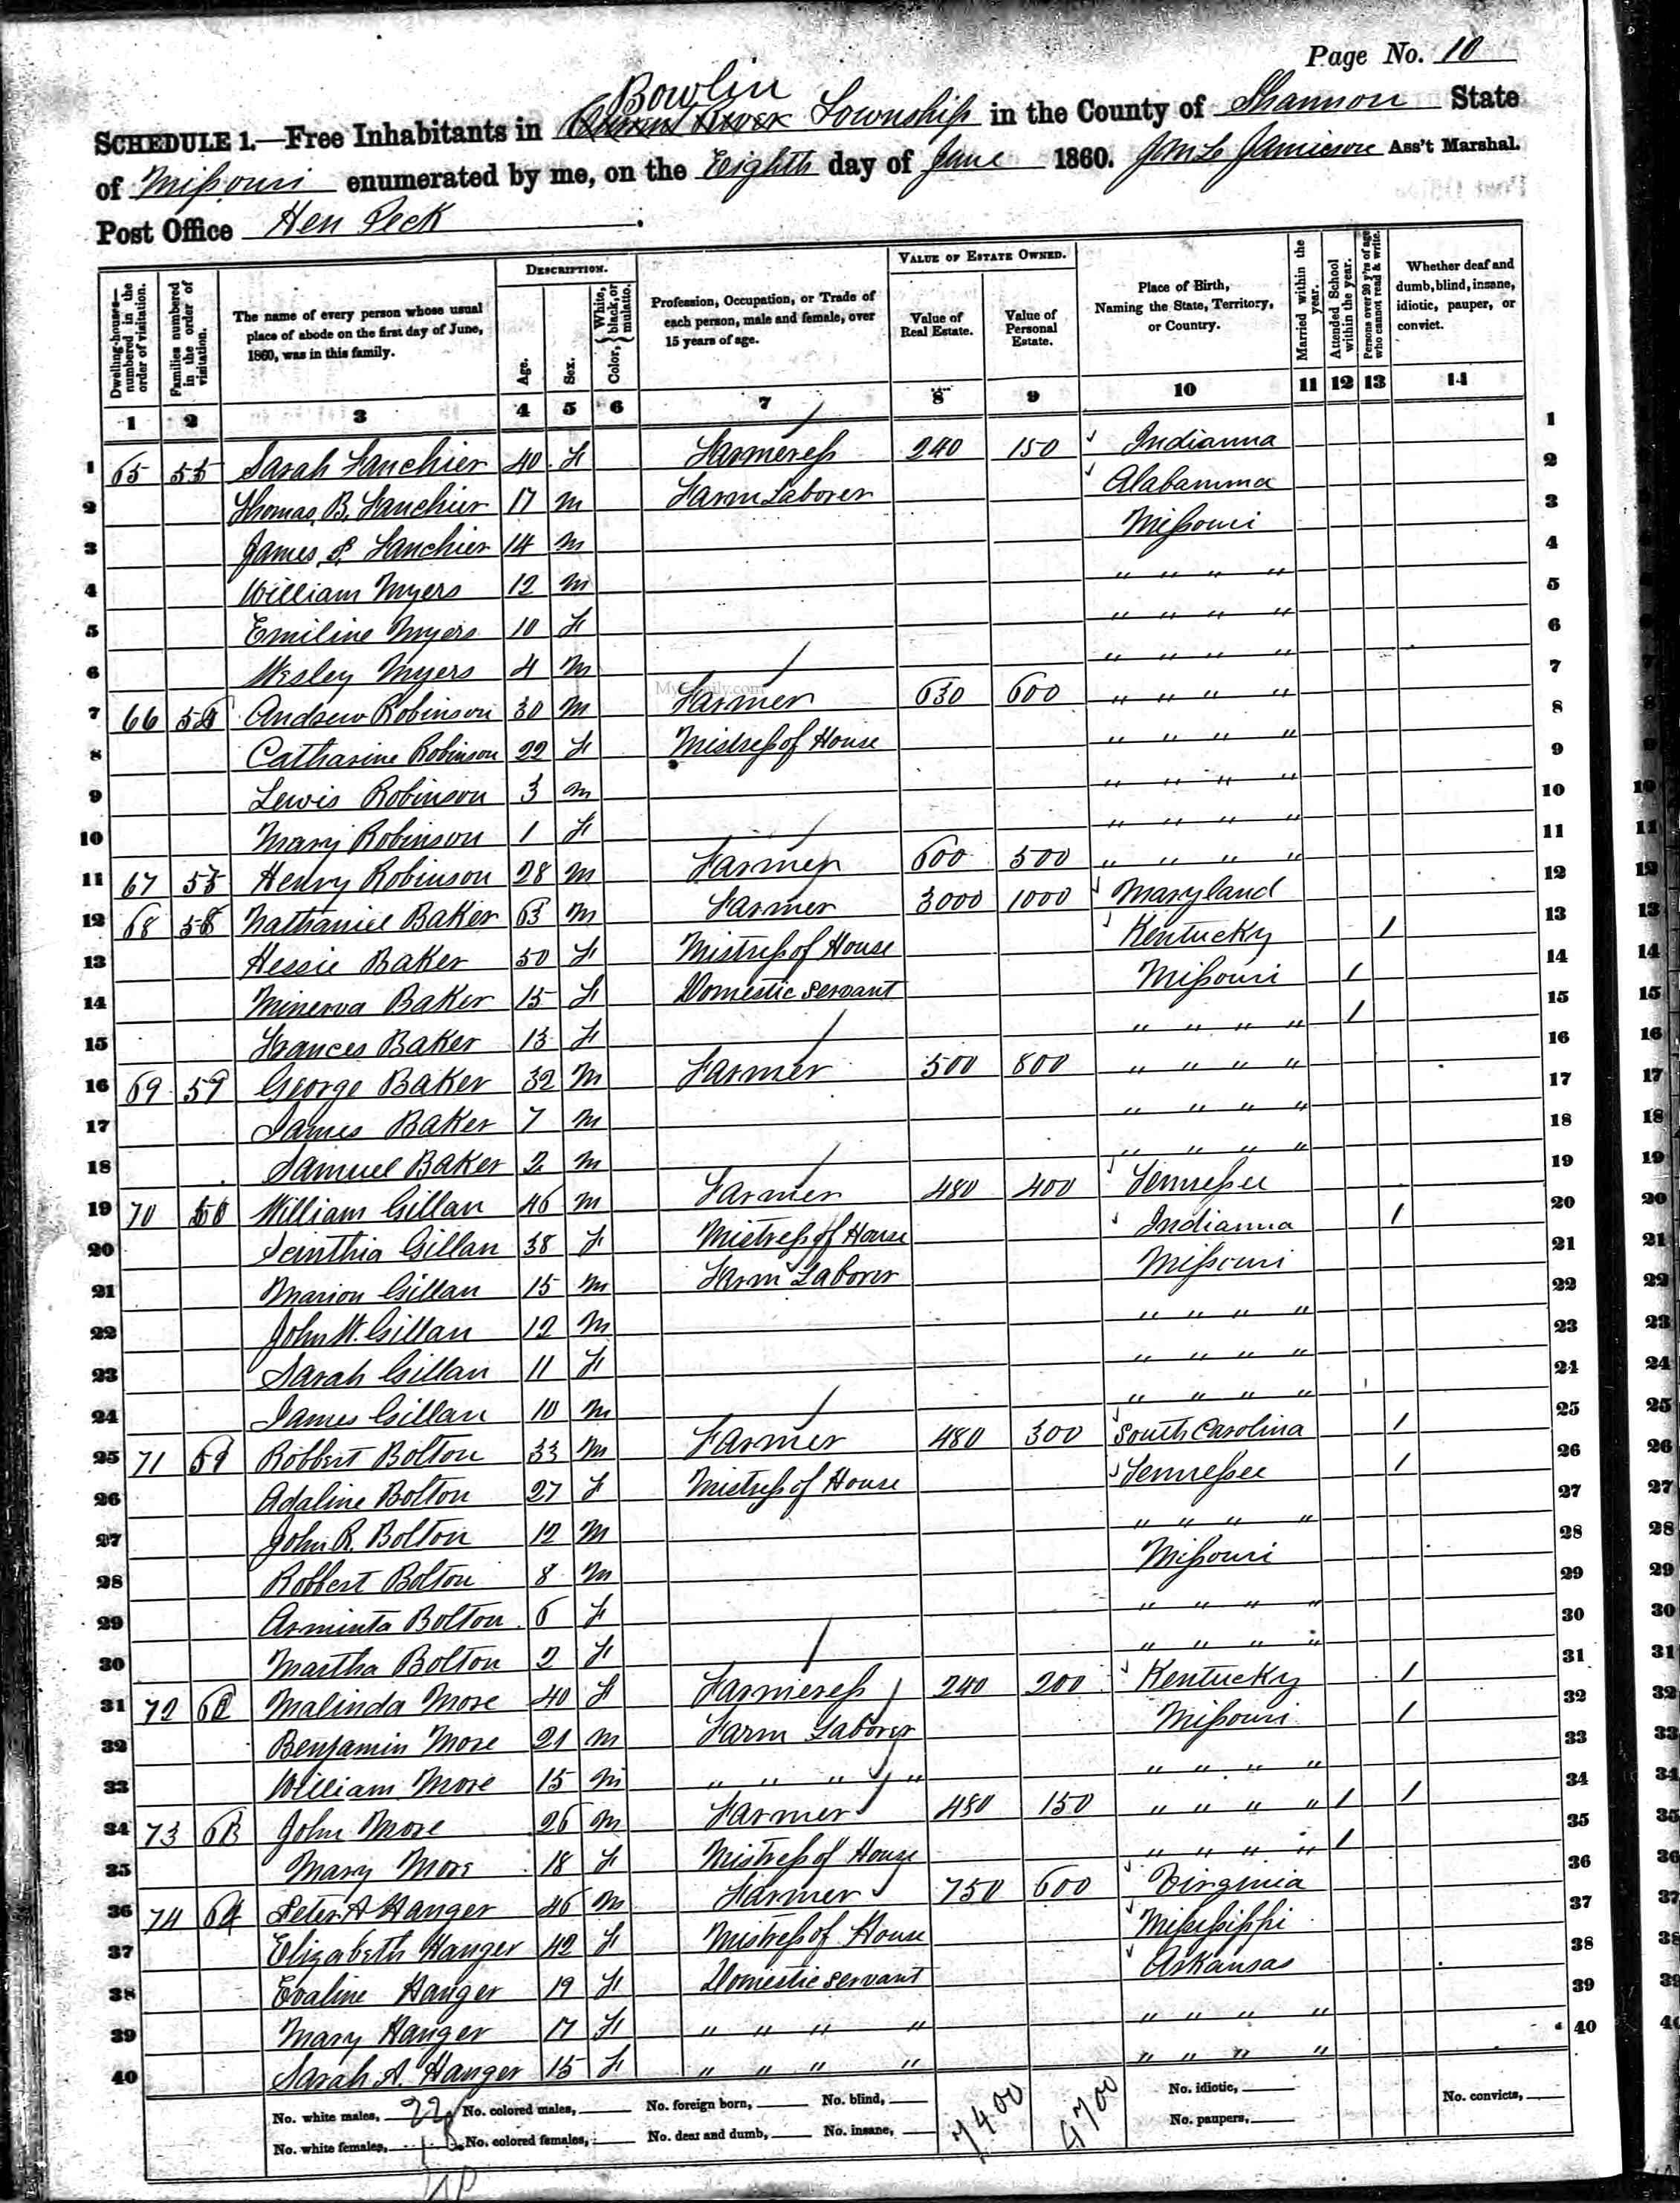 Page No. 10
Bowlin
SCHEDULE 1.—Free Inhabitants in Township in the County of Shannon State
of Missouri enumerated by me, on the Eighth day of June 1860. Jamieson Ass't Marshal.
Post Office Hen Peck
DESCRIPTION. VALUE OF ESTATE OWNED.
Dwelling-houses—numbered in the order of visitation. Families numbered in the order of visitation. The name of every person whose usual place of abode on the first day of June, 1860, was in this family. Age. Sex. Color, {White, black, or mulatto. Profession, Occupation, or Trade of each person, male and female, over 15 years of age. Value of Real Estate. Value of Personal Estate. Place of Birth, Naming the State, Territory, or Country. Married within the year. Attended School within the year. Persons over 20 y'rs of age who cannot read & write. Whether deaf and dumb, blind, insane, idiotic, pauper, or convict.
1 2 3 4 5 6 7 8 9 10 11 12 13 14
1 65 Sarah Fanchier 40 F Farmeress 240 150 Indianna 1
2 Thomas B. Fanchier 17 M Farm Laborer Alabamma 2
3 James Fanchier 14 M Missouri 3
4 William Myers 12 M " " " " 4
5 Emiline Myers 10 F " " " " 5
6 Wesley Myers 4 M " " " " 6
7 66 Andrew Robinson 30 M Farmer 630 600 " " " " 7
8 Catharine Robinson 22 F Mistress of House " " " " 8
9 Lewis Robinson 3 M " " " " 9
10 Mary Robinson 1 F " " " " 10
11 67 Henry Robinson 28 M Farmer 600 500 " " " " 11
12 68 58 Nathaniel Baker 63 M Farmer 3000 1000 Maryland 12
13 Hessie Baker 50 F Mistress of House Kentucky / 13
14 Minerva Baker 15 F Domestic Servant Missouri / 14
15 Frances Baker 13 F " " " " / 15
16 69 59 George Baker 32 M Farmer 500 800 " " " " 16
17 James Baker 7 M " " " " 17
18 Samuel Baker 2 M " " " " 18
19 70 William Gillan 46 M Farmer 480 400 Tennessee 19
20 Scinthia Gillan 38 F Mistress of House Indianna / 20
21 Marion Gillan 15 M Farm Laborer Missouri 21
22 John W. Gillan 12 M " " " " 22
23 Sarah Gillan 11 F " " " " 23
24 James Gillan 10 M " " " " 24
25 71 Robbert Bolton 33 M Farmer 480 300 South Carolina / 25
26 Adaline Bolton 27 F Mistress of House Tennessee / 26
27 John R. Bolton 12 M " " " " 27
28 Robbert Bolton 8 M Missouri 28
29 Arminta Bolton 6 F " " " " 29
30 Martha Bolton 2 F " " " " 30
31 72 Malinda More 40 F Farmeress 240 200 Kentucky / 31
32 Benjamin More 21 M Farm Laborer Missouri / 32
33 William More 15 M " " " " " " " " 33
34 73 John More 26 M Farmer 480 150 " " " " / / 34
35 Mary More 18 F Mistress of House " " " " / 35
36 74 64 Peter A Hanger 46 M Farmer 750 600 Virginia 36
37 Elizabeth Hanger 42 F Mistress of House Mississippi 37
38 Evaline Hanger 19 F Domestic servant Arkansas 38
39 Mary Hanger 17 F " " " " " " " " 39
40 Sarah A. Hanger 15 F " " " " " " " " 40
No. white males, 22 No. colored males, No. foreign born, No. blind, 7400 4700 No. idiotic, No. convicts,
No. white females, 18 No. colored females, No. deaf and dumb, No. insane, No. paupers,
MyFamily.com